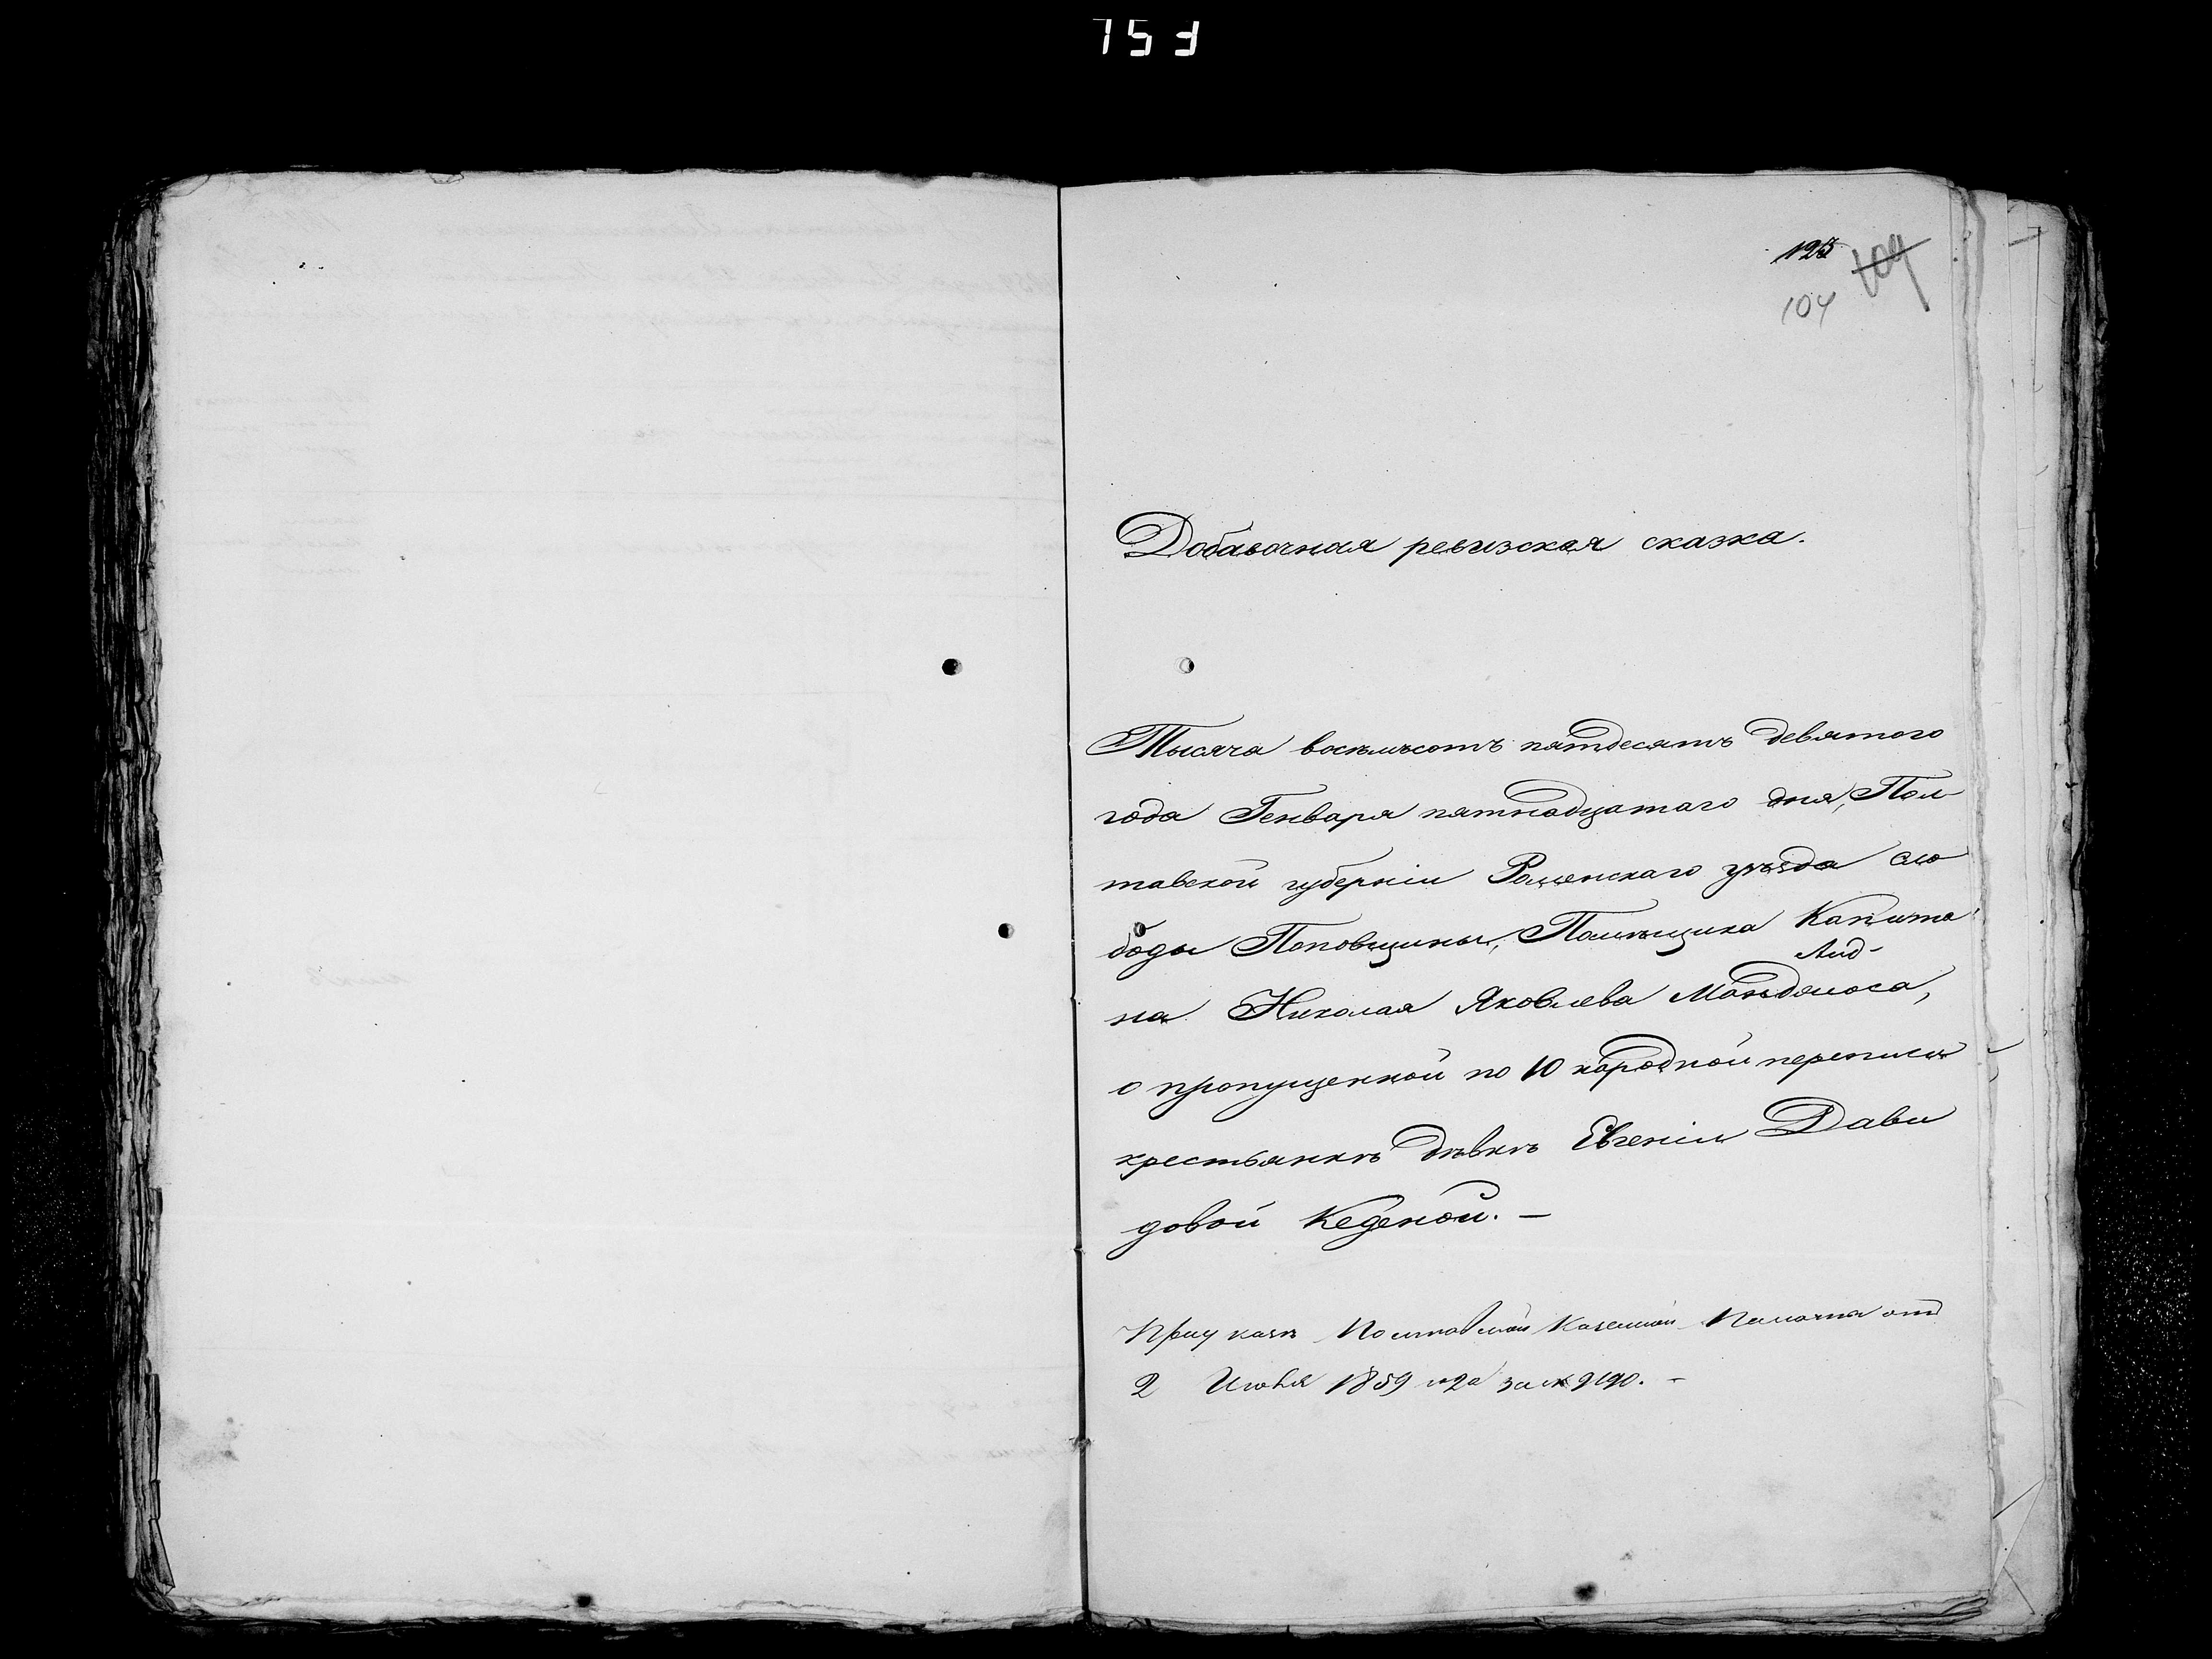 753
125
109
104
Добавочная ревизская сказка.
Тысяча восемьсотъ пятдесятъ девятого
года Генваря пятнадцатаго дня, Пол
тавской губерніи Роменскаго уѣзда сло
боды Поповщины, Помѣщика Капита
на Николая Яковлева
о пропущенной по 10 народной переписи
крестьянкѣ дѣвкѣ Евгеніи Дави
довой Кеденой. —
При указѣ Полтавской Казенной Палаты отъ
2 Июня 1859 года за № 9190. -